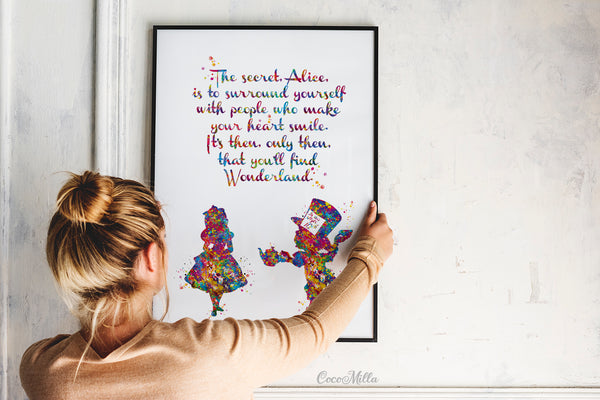 The secret, Alice,
is to surround yourself
with people who make
your heart smile.
It's then, only then,
that you'll find
Wonderland.
CocoMilla